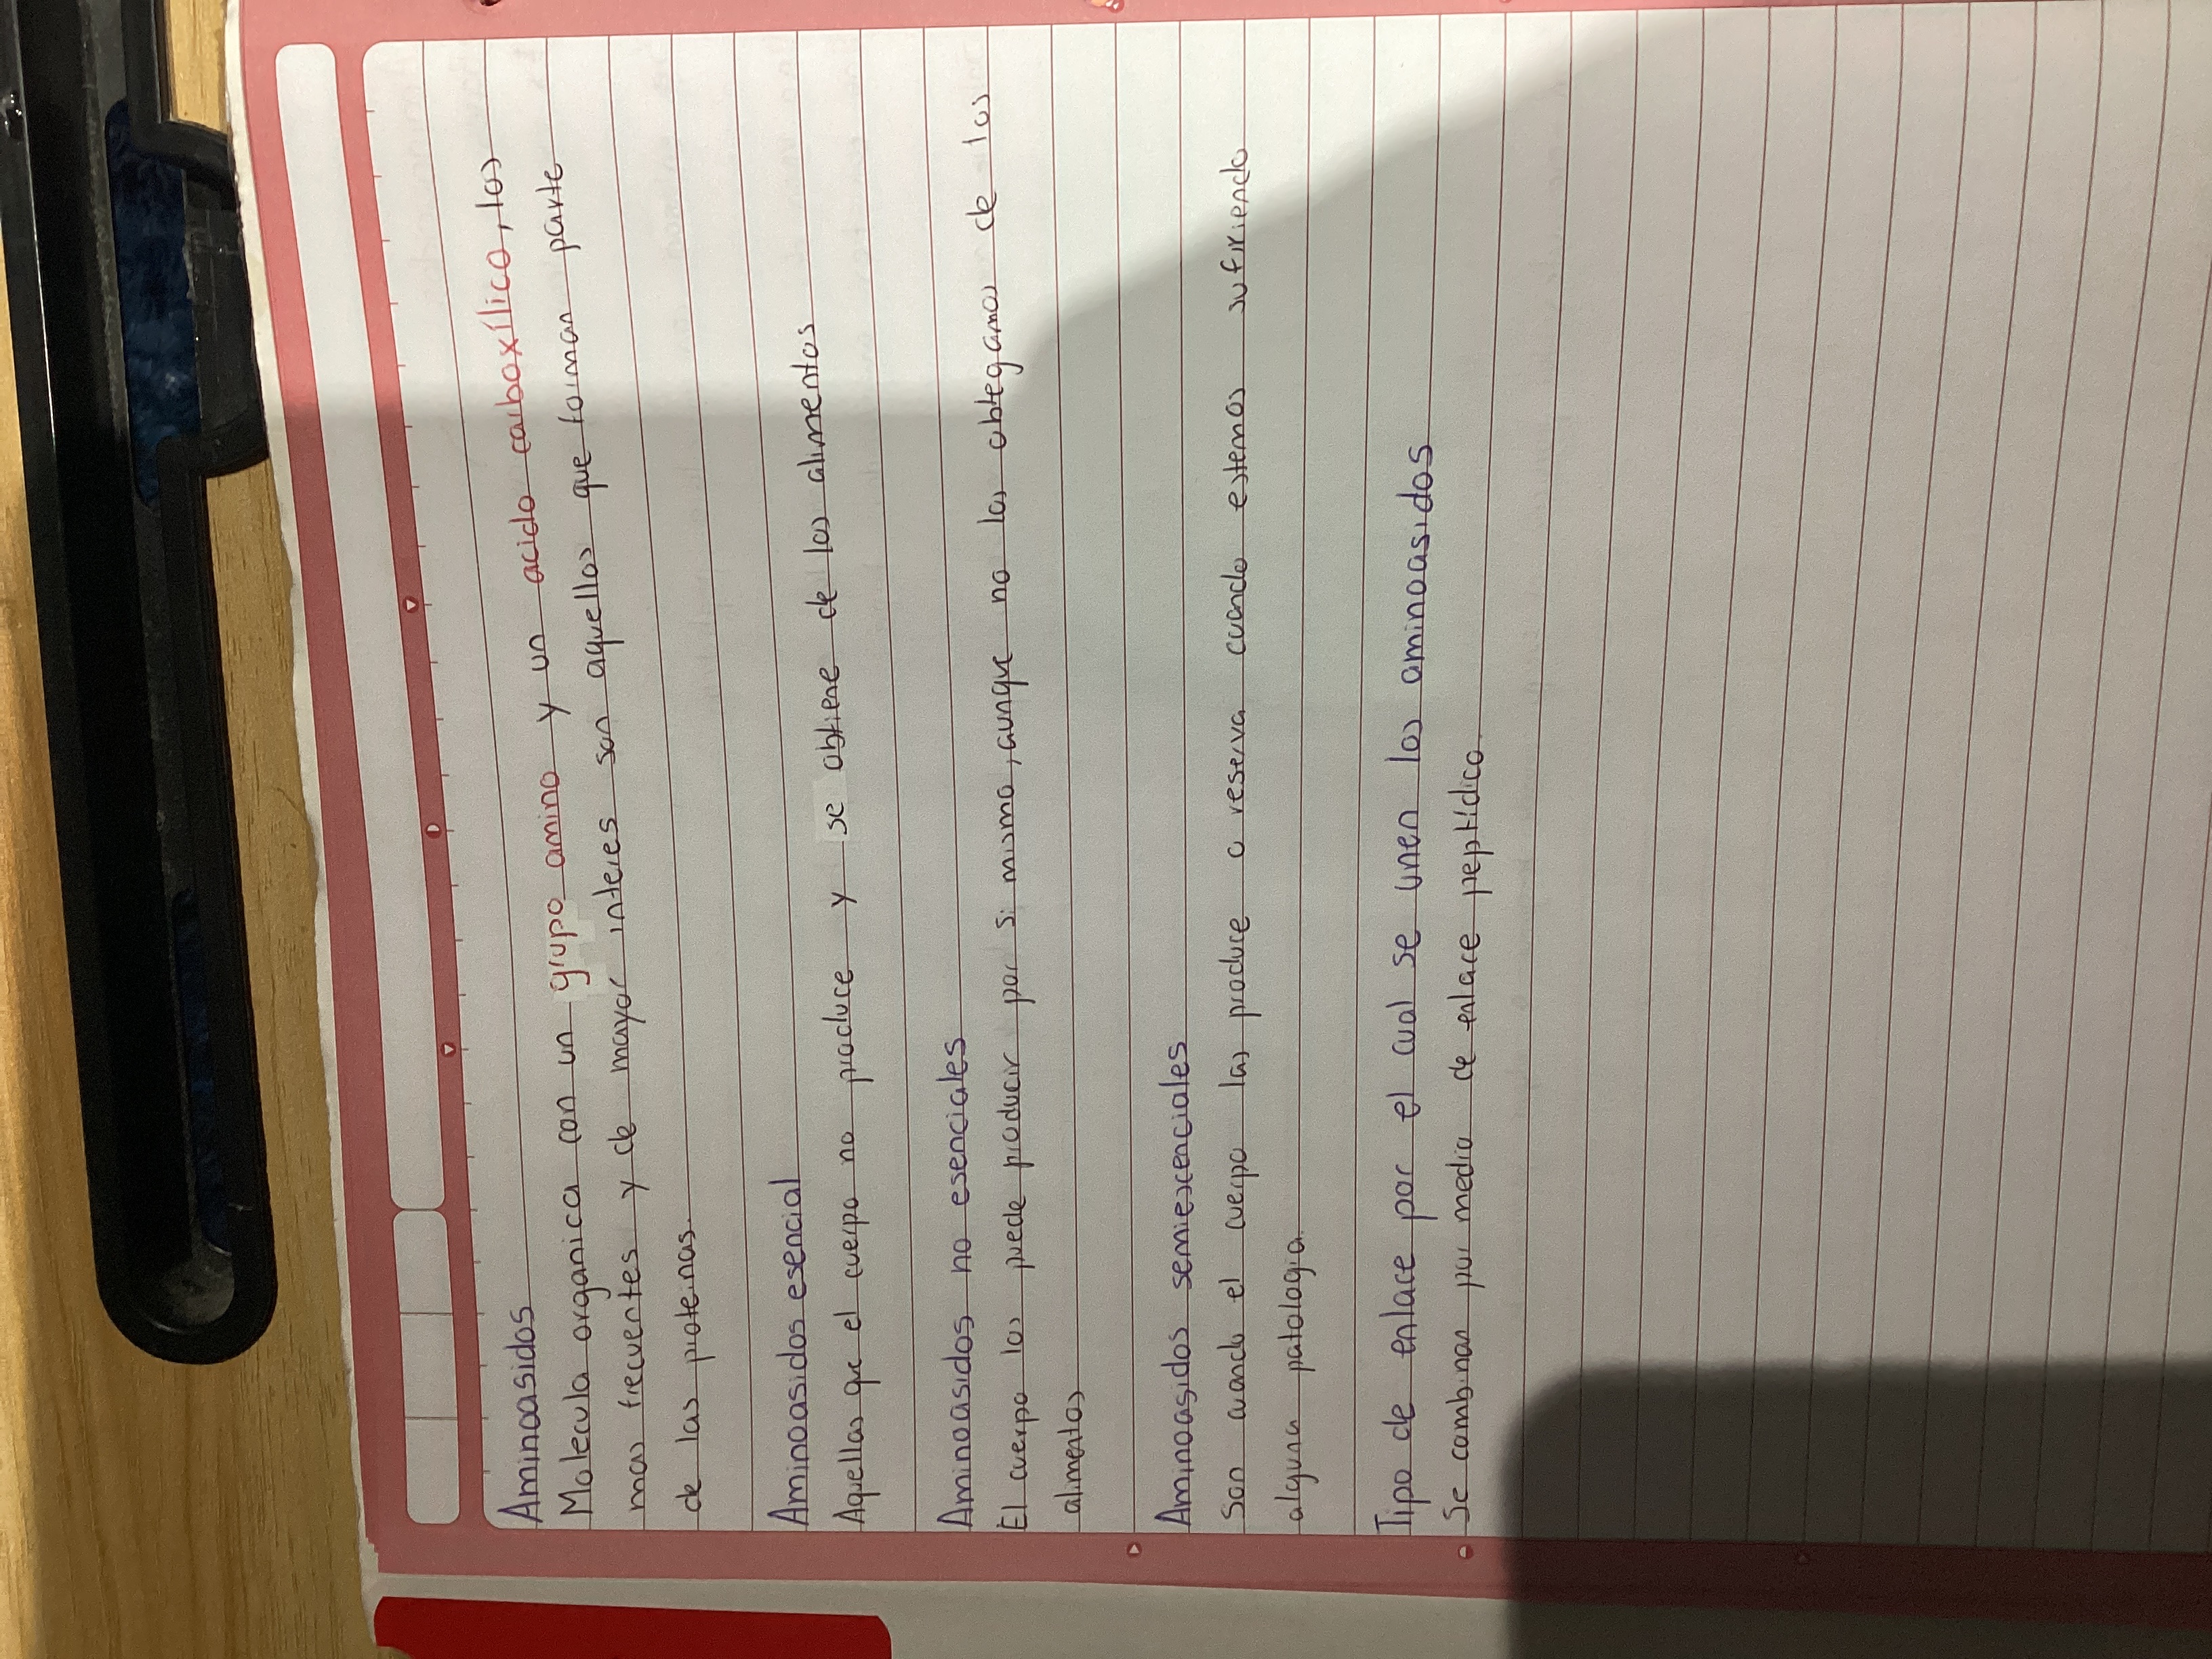 Aminoasidos
Molecula organica con un grupo amino y un acido carboxílico, los
mas frecuentes y de mayor interes son aquellos que forman parte
de las proteinas.
Aminoasidos esencial
Aquellas que el cuerpo no produce y se obtiene de los alimentos
Aminoasidos no esenciales
El cuerpo los puede producir por si mismo, aunque no los obtegamos de los
alimentos
Aminoasidos semiescenciales
Son cuando el cuerpo las produce o reserva cuando estemos sufriendo
alguna patologia.
Tipo de enlace por el cual se unen los aminoasidos
Se combinan por medio de enlace peptídico.